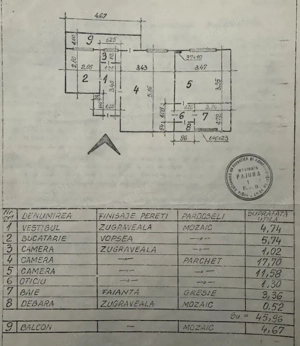 4.67
9
1.20
3
2
1
2.05
3.43
4
5
3.47
6
7
8
PAJURA
Nr. DENUMIREA FINISAJE PERETI PARDOSELI SUPRAFATA UTILA
1 VESTIBUL ZUGRAVEALA MOZAIC 4,74
2 BUCATARIE VOPSEA —"— 5,74
3 CAMARA ZUGRAVEALA —"— 1.02
4 CAMERA —"— PARCHET 17,70
5 CAMERA —"— —"— 11,58
6 OFICIU —"— —"— 1.30
7 BAIE FAIANTA GRESIE 3,36
8 DEBARA ZUGRAVEALA MOZAIC 0.52
Su. = 45,96
9 BALCON — MOZAIC 4,67